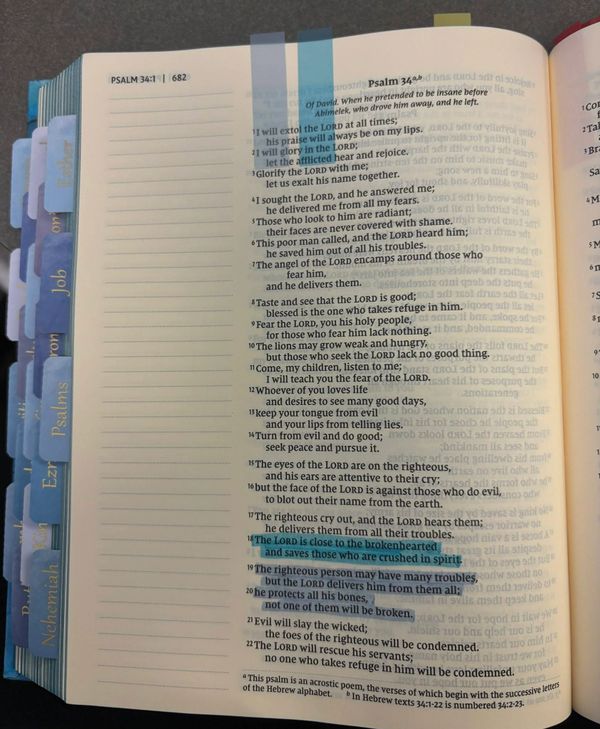 PSALM 34:1 | 682
Psalm 34a,b
Of David. When he pretended to be insane before
Abimelek, who drove him away, and he left.
1 I will extol the LORD at all times;
his praise will always be on my lips.
2 I will glory in the LORD;
let the afflicted hear and rejoice.
3 Glorify the LORD with me;
let us exalt his name together.
4 I sought the LORD, and he answered me;
he delivered me from all my fears.
5 Those who look to him are radiant;
their faces are never covered with shame.
6 This poor man called, and the LORD heard him;
he saved him out of all his troubles.
7 The angel of the LORD encamps around those who
fear him,
and he delivers them.
8 Taste and see that the LORD is good;
blessed is the one who takes refuge in him.
9 Fear the LORD, you his holy people,
for those who fear him lack nothing.
10 The lions may grow weak and hungry,
but those who seek the LORD lack no good thing.
11 Come, my children, listen to me;
I will teach you the fear of the LORD.
12 Whoever of you loves life
and desires to see many good days,
13 keep your tongue from evil
and your lips from telling lies.
14 Turn from evil and do good;
seek peace and pursue it.
15 The eyes of the LORD are on the righteous,
and his ears are attentive to their cry;
16 but the face of the LORD is against those who do evil,
to blot out their name from the earth.
17 The righteous cry out, and the LORD hears them;
he delivers them from all their troubles.
18 The LORD is close to the brokenhearted
and saves those who are crushed in spirit.
19 The righteous person may have many troubles,
but the LORD delivers him from them all;
20 he protects all his bones,
not one of them will be broken.
21 Evil will slay the wicked;
the foes of the righteous will be condemned.
22 The LORD will rescue his servants;
no one who takes refuge in him will be condemned.
a This psalm is an acrostic poem, the verses of which begin with the successive letters
of the Hebrew alphabet. b In Hebrew texts 34:1-22 is numbered 34:2-23.
Esther
Job
Psalms
Ezr
Nehemiah